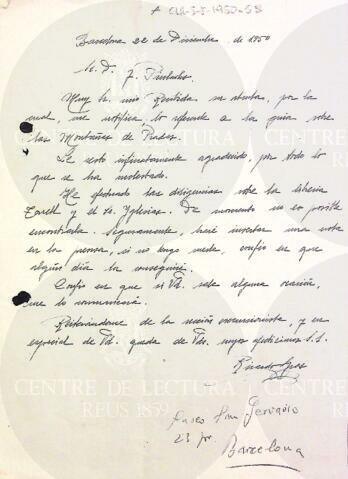 Barcelona 22 de Diciembre de 1950
Sr. D. J.
Muy Sr. mio Recibida su atenta, por la
cual, me notifica, lo referente a la guia sobre
las Montañas de Prades.
Le resto infinitamente agradecido, por todo lo
que se ha molestado.
He efectuado las diligencias sobre la libreria
y el Sr. Yglesias. De momento no es posible
encontrarla. Seguramente, haré insertar una nota
en la prensa, si no tengo suerte, confio en que
algún dia la conseguiré.
Confio en que si Vd. sabe alguna ocasión,
me lo comunicará.
de la sección excursionista, y en
especial de Vd. queda de Vds. S.S.
Ricardo
Paseo San Gervasio
23 pr.
Barcelona
CENTRE DE LECTURA
REUS 1859